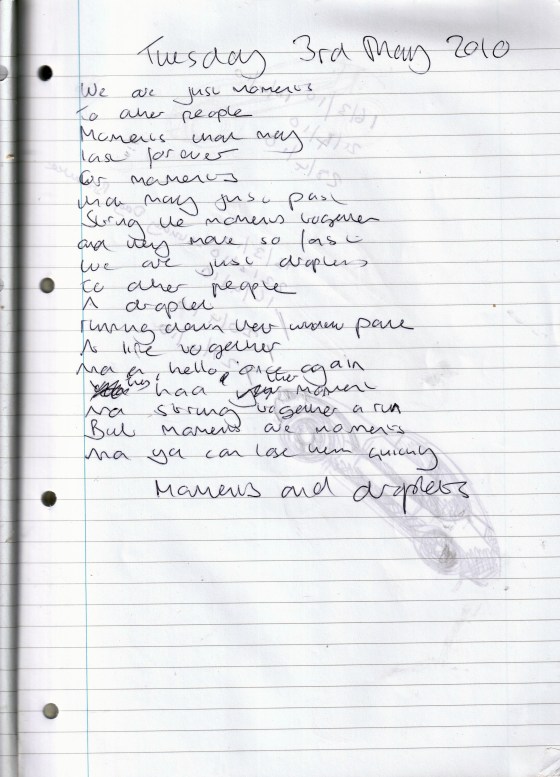 Tuesday 3rd May 2010
We are just moments
To other people
Moments that may
last forever
Or moments
that may just pass
String the moments together
and they move so fast
We are just droplets
To other people
A droplet
running down their window pane
A life together
hello once again
they had their moment
string together a run
But moments are moments
you can lose them quickly
Moments and droplets